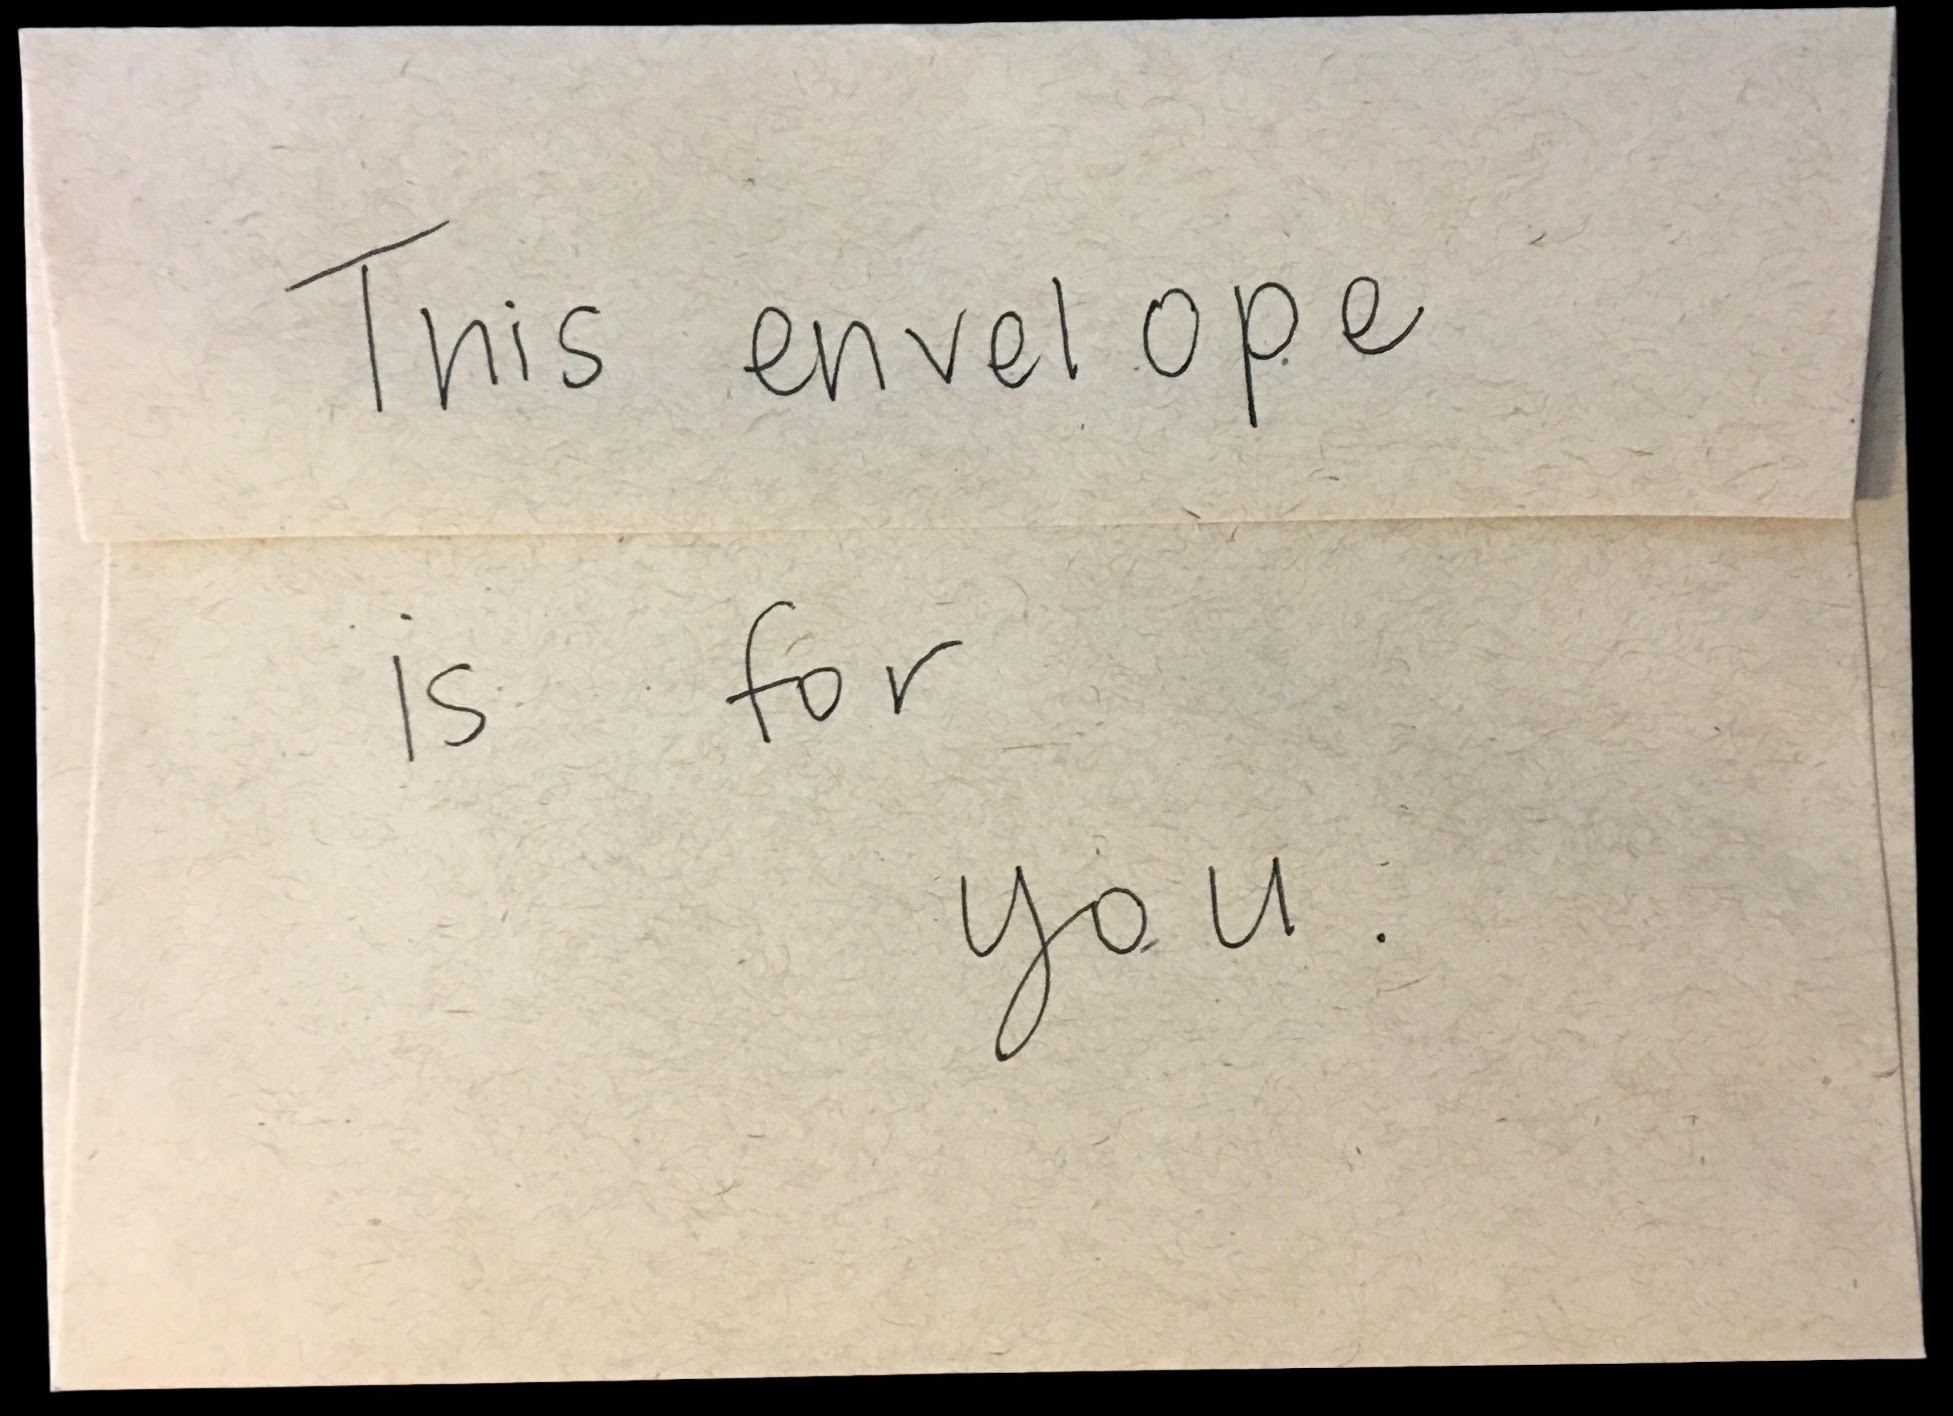 This envelope
is for
you.